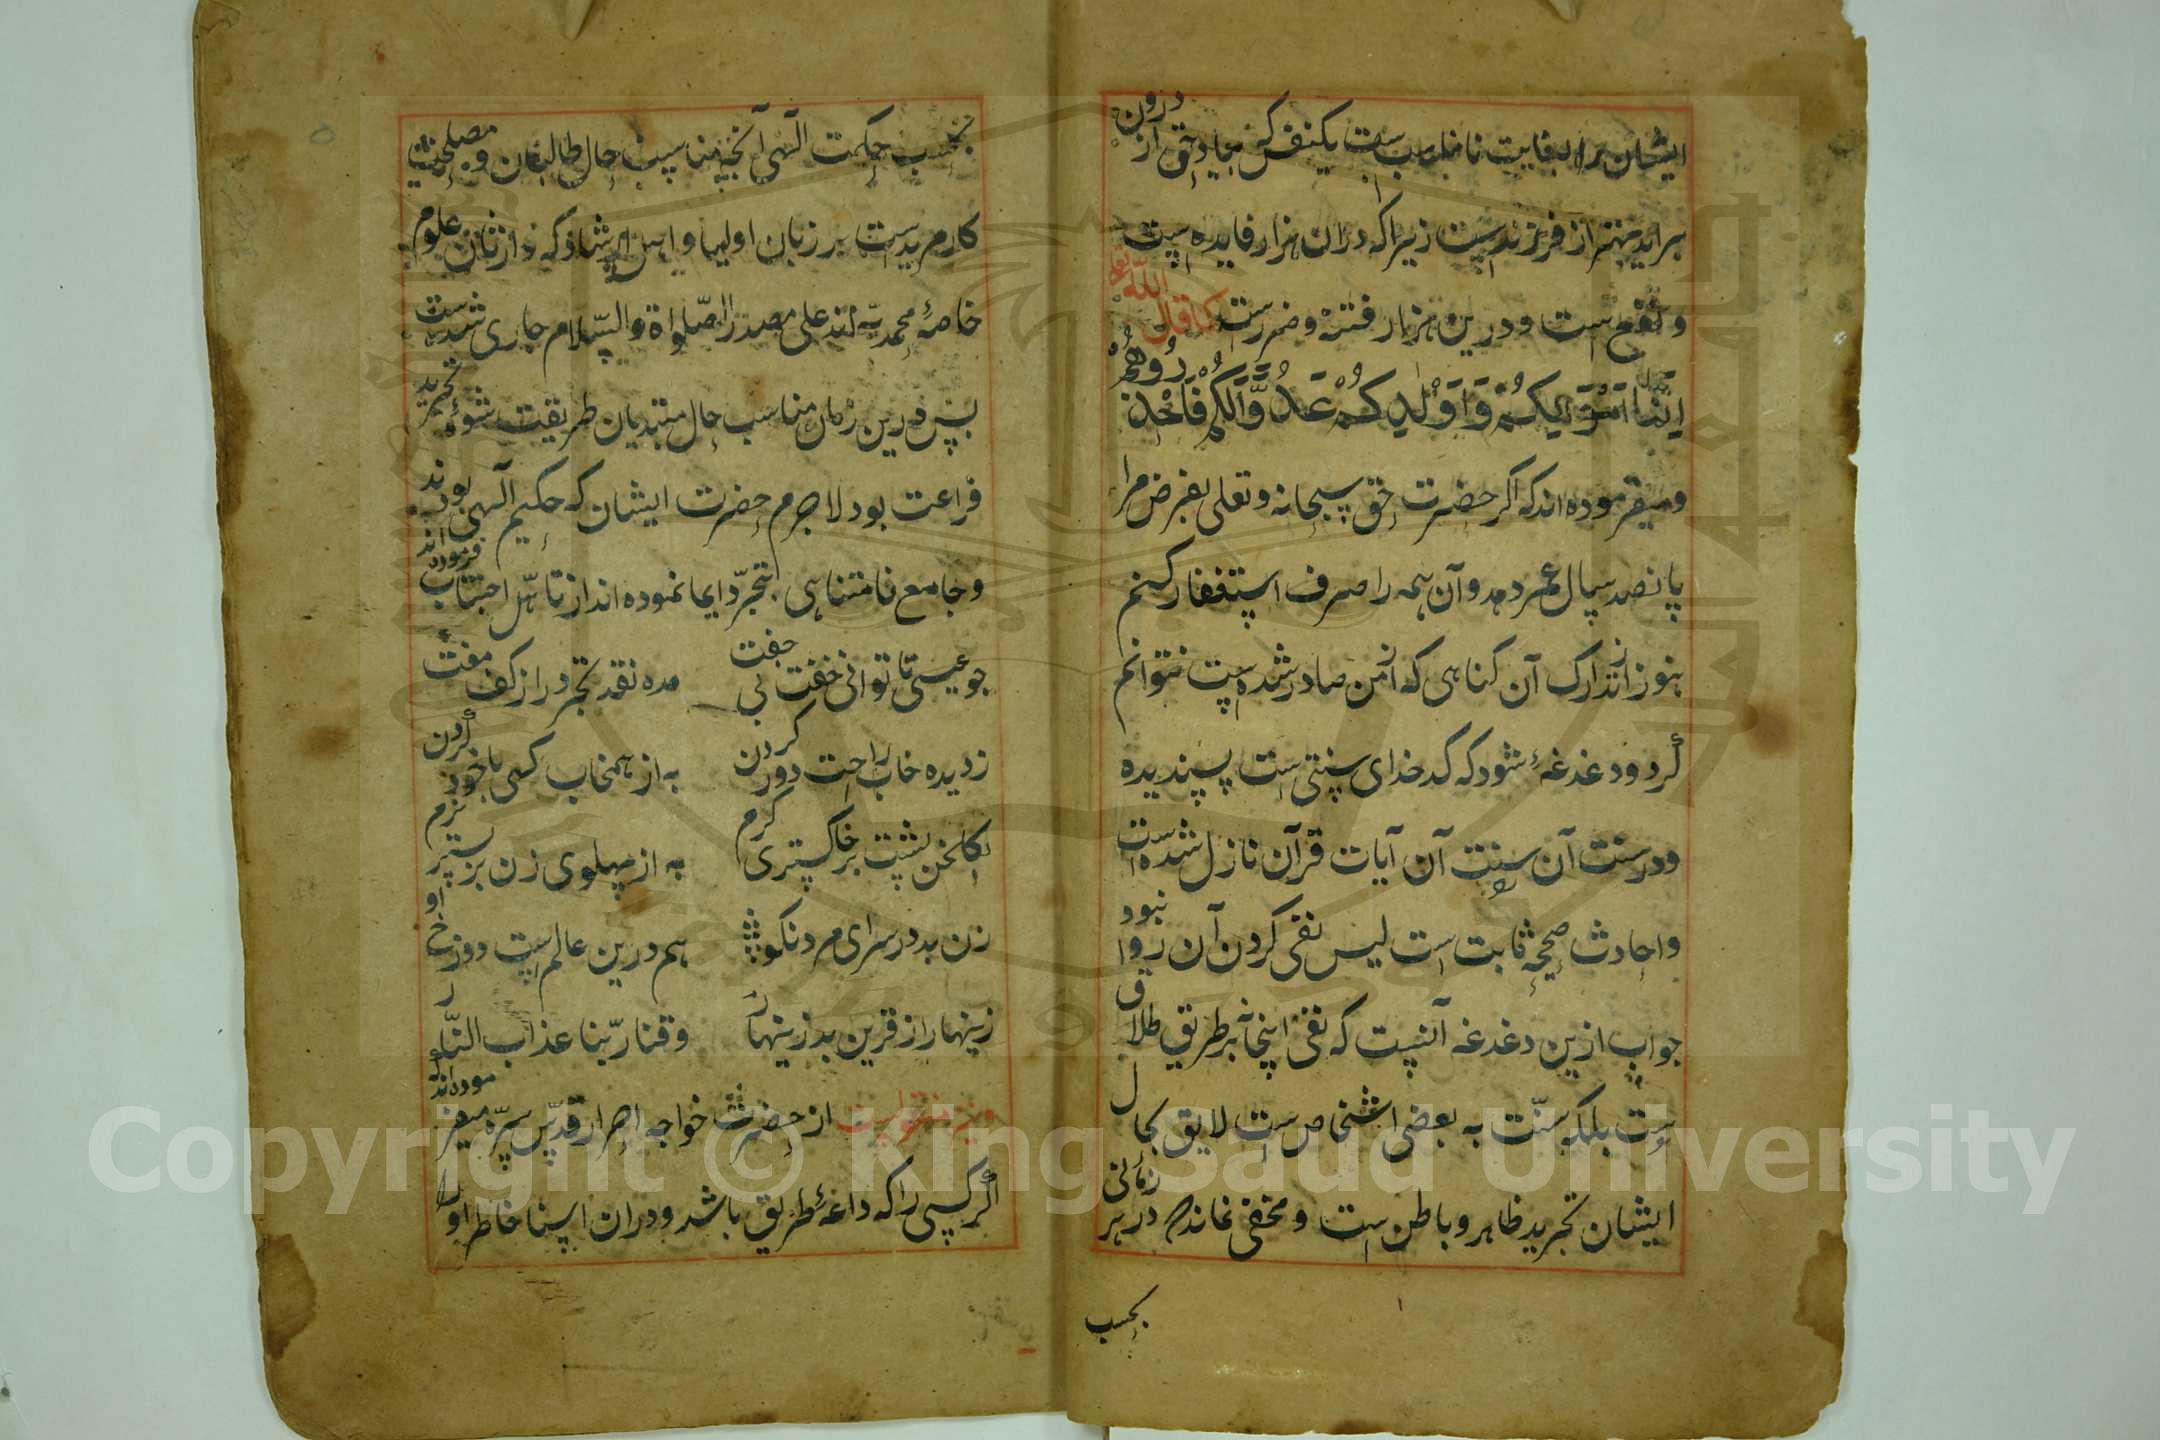 ایشان را بغایت نامناسب ست یکنفس که بیاد حق از درون
براید بهتر از فرزندست زیرا که دران هزار فایده است
و نفع است و درین هزار فتنه و ضررست کما قال الله تعا
اِنَّمَا اَمْوَالِیکُمْ وَاَوْلٰدِیکُمْ عَدُوًّ الَّکُمْ فَاحْذَرُوهُمْ
و میفرموده اند که اکر حضرت حق سبحانه و تعلی بفرض مرا
پانصد سال عمر دهد و آن همه را صرف استغفار کنم
هنوز از تدارک آن کناهی که از من صادر شده است نتوانم
کرد و دغدغهٔ شود که کدخدای سنتی است پسندیده
و در سنت آن سنت آن آیات قرآن نازل شده است
و احادث صحیحه ثابت است لیس نفی کردن آن روا نبود
جواب ازین دغدغه آنست که نفی اینجا نه بر طریق طلاق
ست بلکه سنّت به بعضی اشخاص ست لایق بحال
ایشان تجرید ظاهر و باطن است و مخفی نماند که در هر زمانی
بحسب
بحسب حکمت آلهی آنچه مناسب حال طالبان و مصلحت
کار مریدست بر زبان اولیا و اهل ارشاد که وارثان علوم
خاصهٔ محمدیه اند علی مصدر الصّلواة والسّلام جاری شده ست
پس درین زمان مناسب حال مبتدیان طریقت شوهٔ تجرید
فراعت بود لاجرم حضرت ایشان که حکیم آلهی بودند
و جامع نامتناهی بتجرّد ایما نموده اند از تاهّل اجتناب فرموده اند
جو عیسی تا توانی خفت بی جفت مده نقد تجرد را ز کف مفت
ز دیده خاب راحت دور کردن به از همخاب کسی با خود کردن
بکلخن پشت بر خاکستری کرم به از پهلوی زن بر بستر نرم
زن بد در سرای مرد نکو هم درین عالمست دوزخ او
زینهار از قرین بد زینهار وقنا ربّنا عذاب النّار
و نیز منقولست از حضرت خواجه احرار قدّس سرّه میفرموده اند که
اکر کسی را که داعهٔ طریق باشد و دران اسنا خاطر او را
Copyright © King Saud University